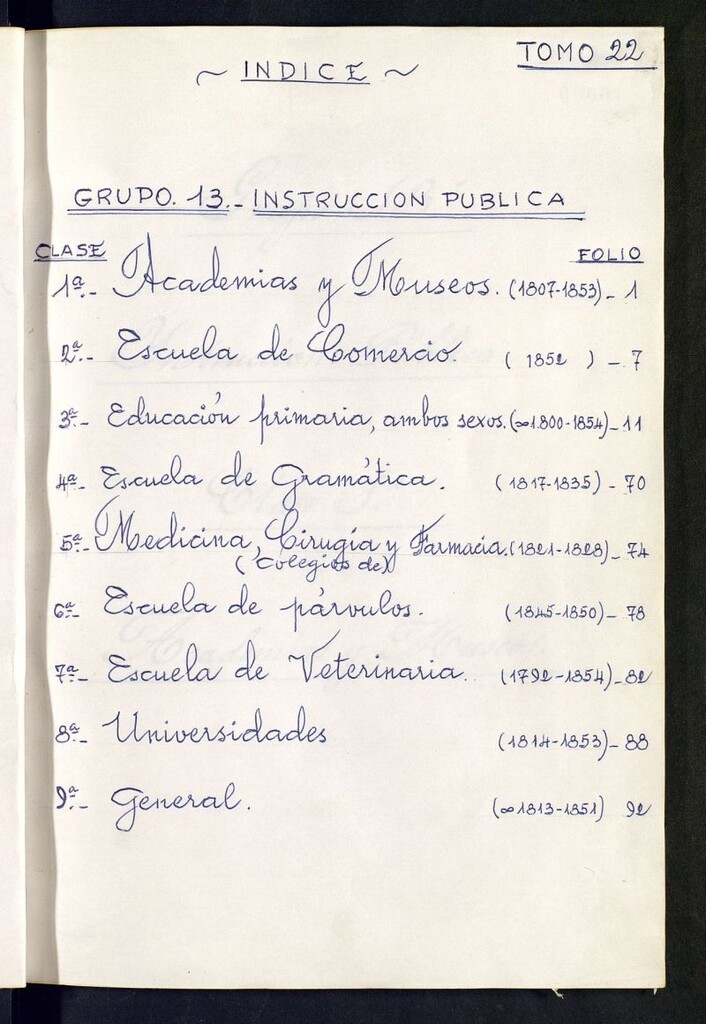 TOMO 22
~ INDICE ~
GRUPO. 13.- INSTRUCCION PUBLICA
CLASE FOLIO
1ª.- Academias y Museos. (1807-1853)- 1
2ª.- Escuela de Comercio. ( 1852 ) - 7
3ª.- Educación primaria, ambos sexos. (∞1800-1854)- 11
4ª.- Escuela de Gramática. (1817-1835) - 70
5ª.- Medicina, Cirugía y Farmacia. (1821-1828)- 74
(Colegios de)
6ª.- Escuela de párvulos. (1845-1850) - 78
7ª.- Escuela de Veterinaria. (1792-1854)- 82
8ª.- Universidades (1814-1853)- 88
9ª.- General. (∞1813-1851) 92